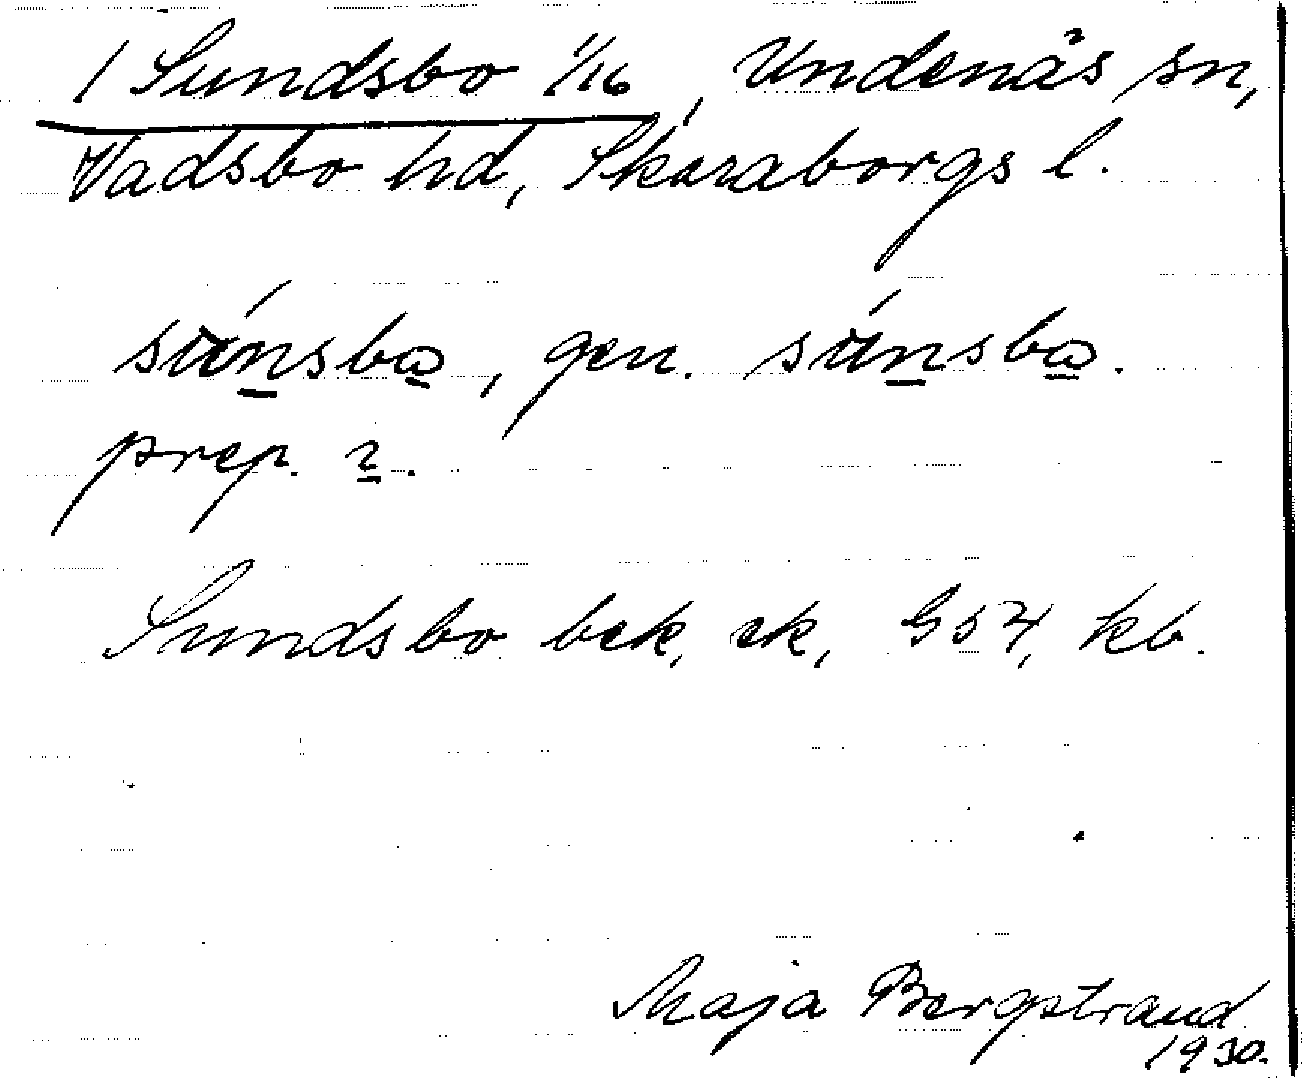 1 Sundsbo 1/16, Undenäs sn,
Vadsbo hd, Skaraborgs l.
súnsbo, gen. súnsbo.
prep. ɩ.
Sundsbo bek, ek, G57, kb.
Maja Bergstrand
1930.